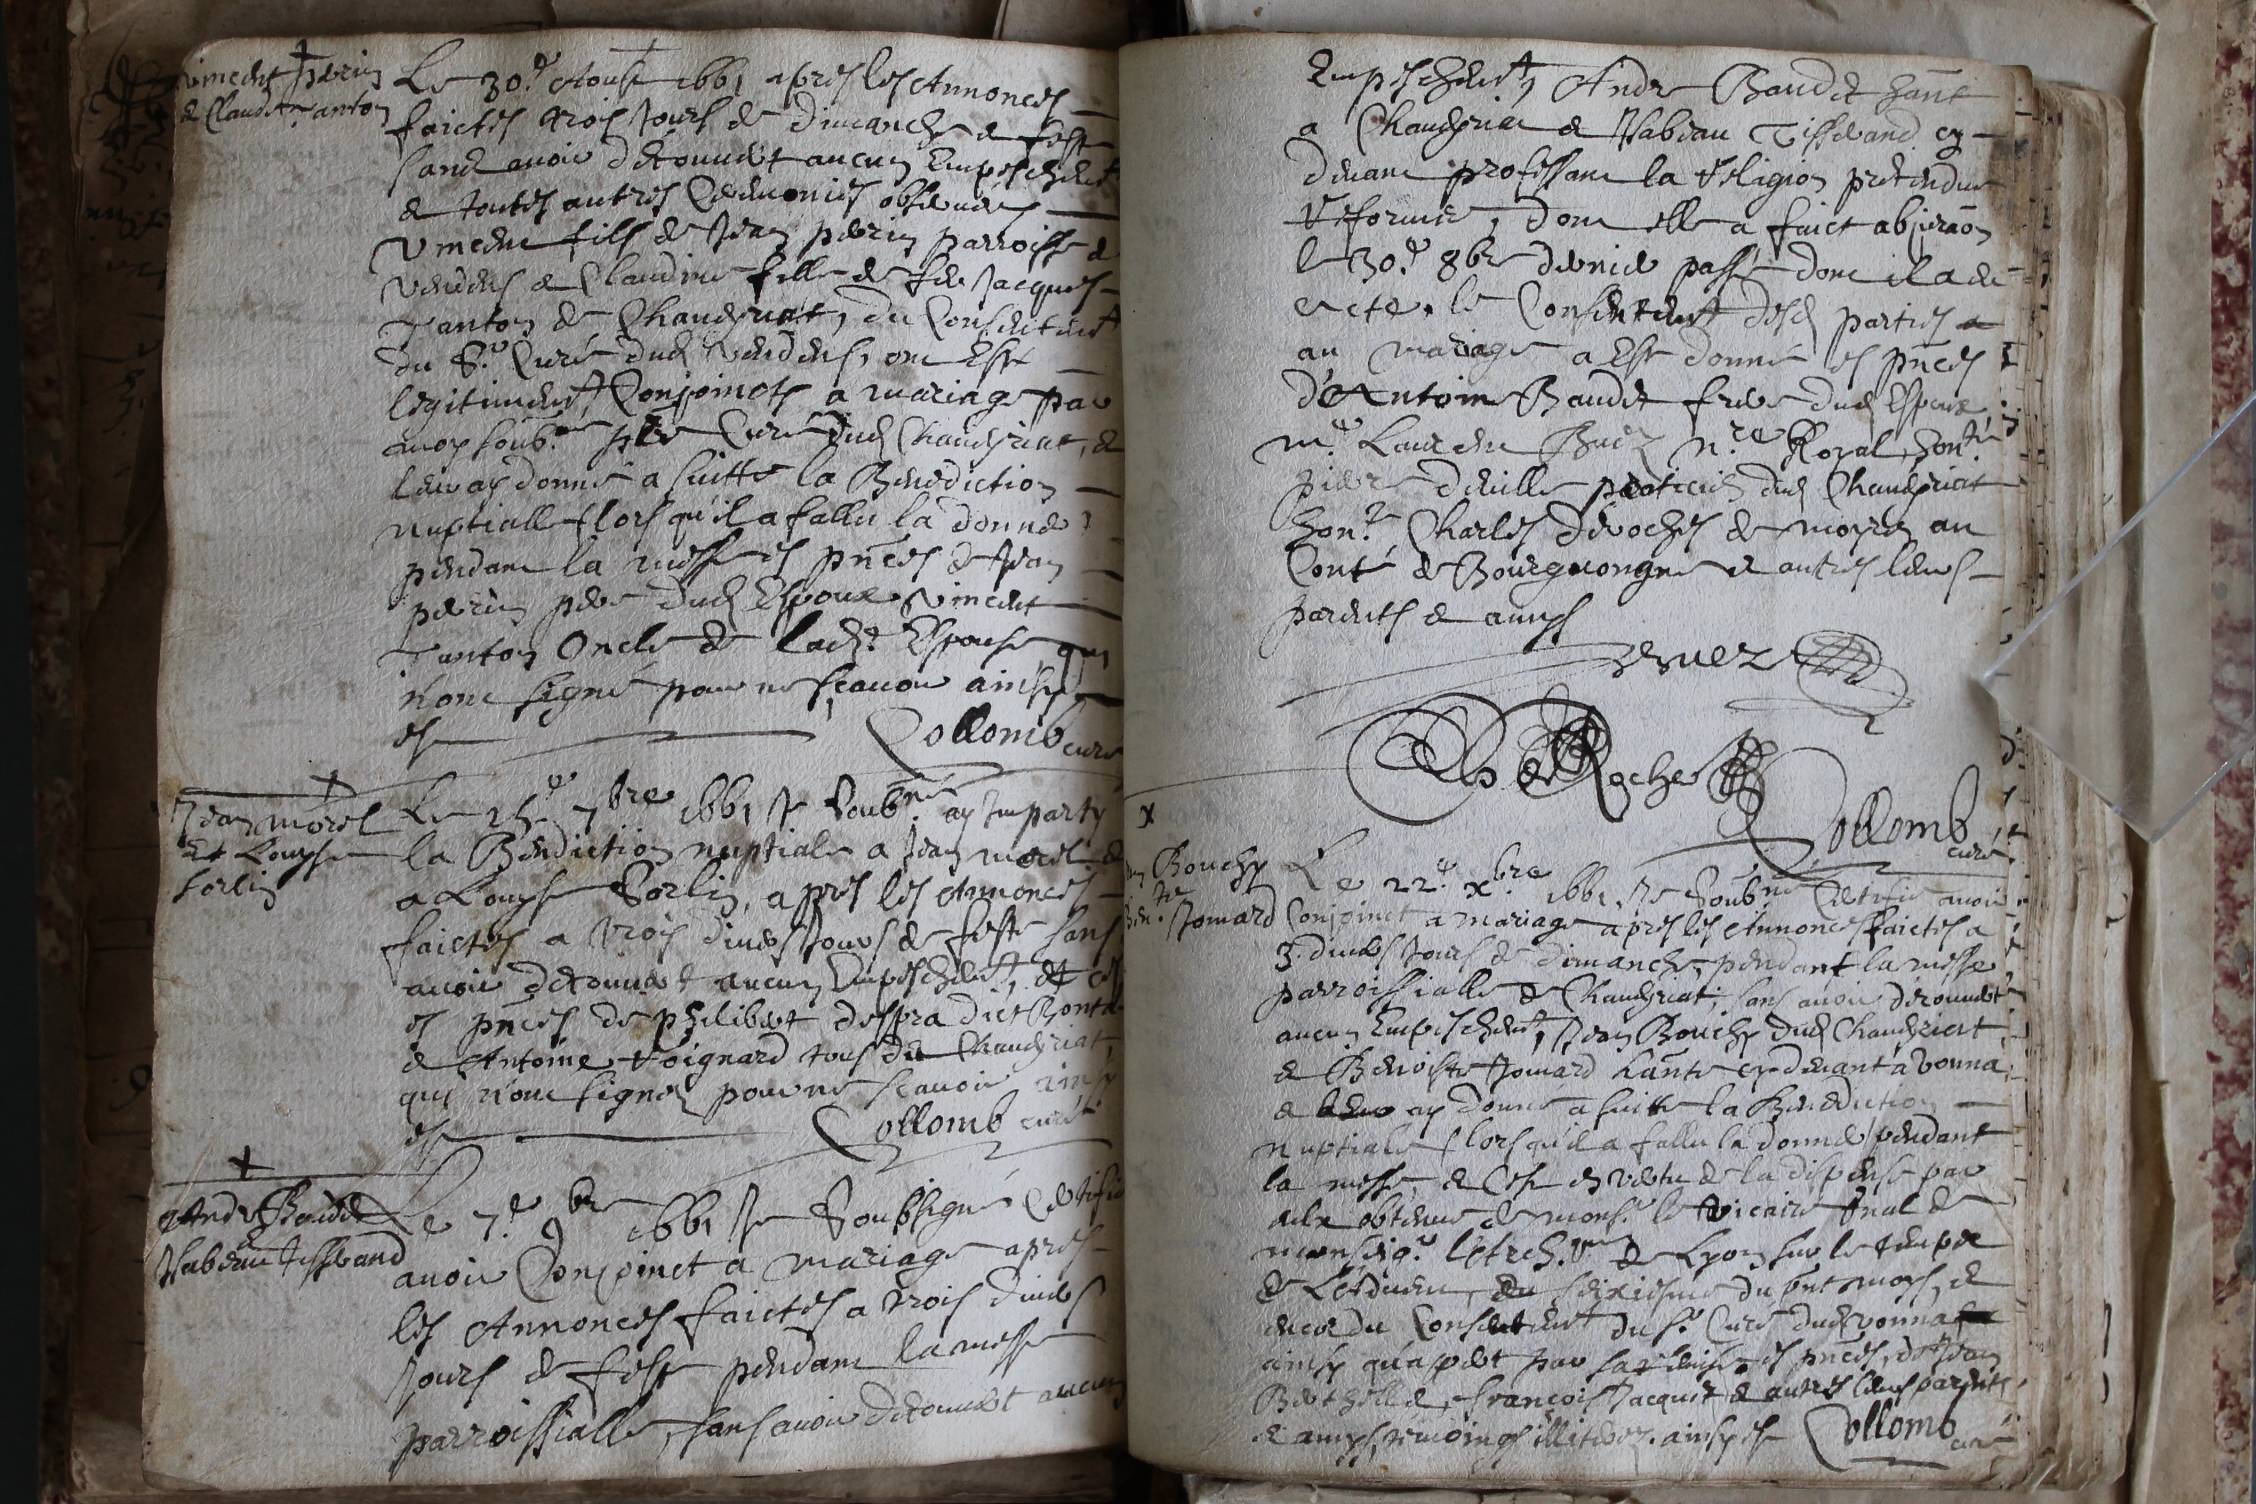 Vincent perrin
& Claudine Tanton
Le 30.e Aoust 1661 apres les Annonces
faictes trois Jours de dimanche & feste
sans avoir descouvert aucun Empeschemt
& toutes autres Ceremonies observées
Vincent fils de Jean perrin parroisse de
& Claudine fille de feu Jacques
Tanton de Chaveyriat, du Consentemt
du Sr. Curé dud ont esté
legitimemt Conjoincts a mariage par
moy soubz.né pbre Curé dud Chaveyriat, &
leur ay donné a suitte la Benediction
nuptialle (lors qu'il a fallu la donner)
pendant la messe es pñces de Jean
perrin pere dud Espoux Vincent
Tanton Oncle de lad.e Espouse qui
n'ont signé pour ne sçavoir ainsy
est
Collomb curé
Jean morel
Et Louyse
Sorlin
Le 25.e 7bre 1661 Je Soub.né ay Imparty
la Benediction nuptiale a Jean morel &
a Louyse Sorlin, apres les Annonces
faictes a trois divers Jours de feste sans
avoir descouvert aucun Empeschemt, et ce
es pñces de philibert despra dict
& Antoine Voignard tous de Chaveyriat
qui n'ont signez pour ne sçavoir ainsy
est
Collomb curé
Andre Baudet
Ysabeau Tisserand
Le 7.e 9bre 1661 Je Soubsigné Certifie
avoir Conjoinct a mariage apres
les Annonces faictes a trois divers
Jours de feste pendant la messe
parroissialle, sans avoir descouvert aucun
Empeschemt, Andre Baudet hañt
a Chaveyriat & Ysabeau Tisserand cy
devant professant la Religion pretendue
reformée, dont elle a faict abjuraõn
le 30.e 8bre dernier passé dont il a
acte, le Consentemt desd parties
au mariage a Esté donné es pñces
d'Antoine Baudet frere dud Espoux,
m.e Laurent n.re Royal, hon.te
pierre deville praticien dud Chaveyriat
hon.e Charles Deroches de moyra au
Conté de Bourguongne & autres leurs
parents & amys
De Roches
Collomb
curé
x
Bouchy
Ben.te Jomard
Le 22.e xbre 1661. Je Soub.né Certifie avoir
Conjoinct a mariage apres les Annonces faictes a
3. divers Jours de dimanche, pendant la messe
parroissialle de Chaveyriat, sans avoir descouvert
aucun Empeschemt, Jean Bouchy dud Chaveyriat,
& Benoiste Jomard hañte cy devant a Vonna,
& leur ay donné a suitte la Benediction
nuptiale (lors qu'il a fallu la donner) pendant
la messe, & Ce en vertu de la dispense par
eulx obtenue de mons.r le Vicaire gnal de
monseig.r l'Arch.que de Lyon sur le temps
de l'Advent, du seixiesme du pnt moys, &
du Consentemt du Sr. Curé dud Vonna
ainsy qu'appert par sa es pñces de Jean
francois Jacquet & autres leurs parents
& amys, temoings illiterez. ainsy est Collomb
curé